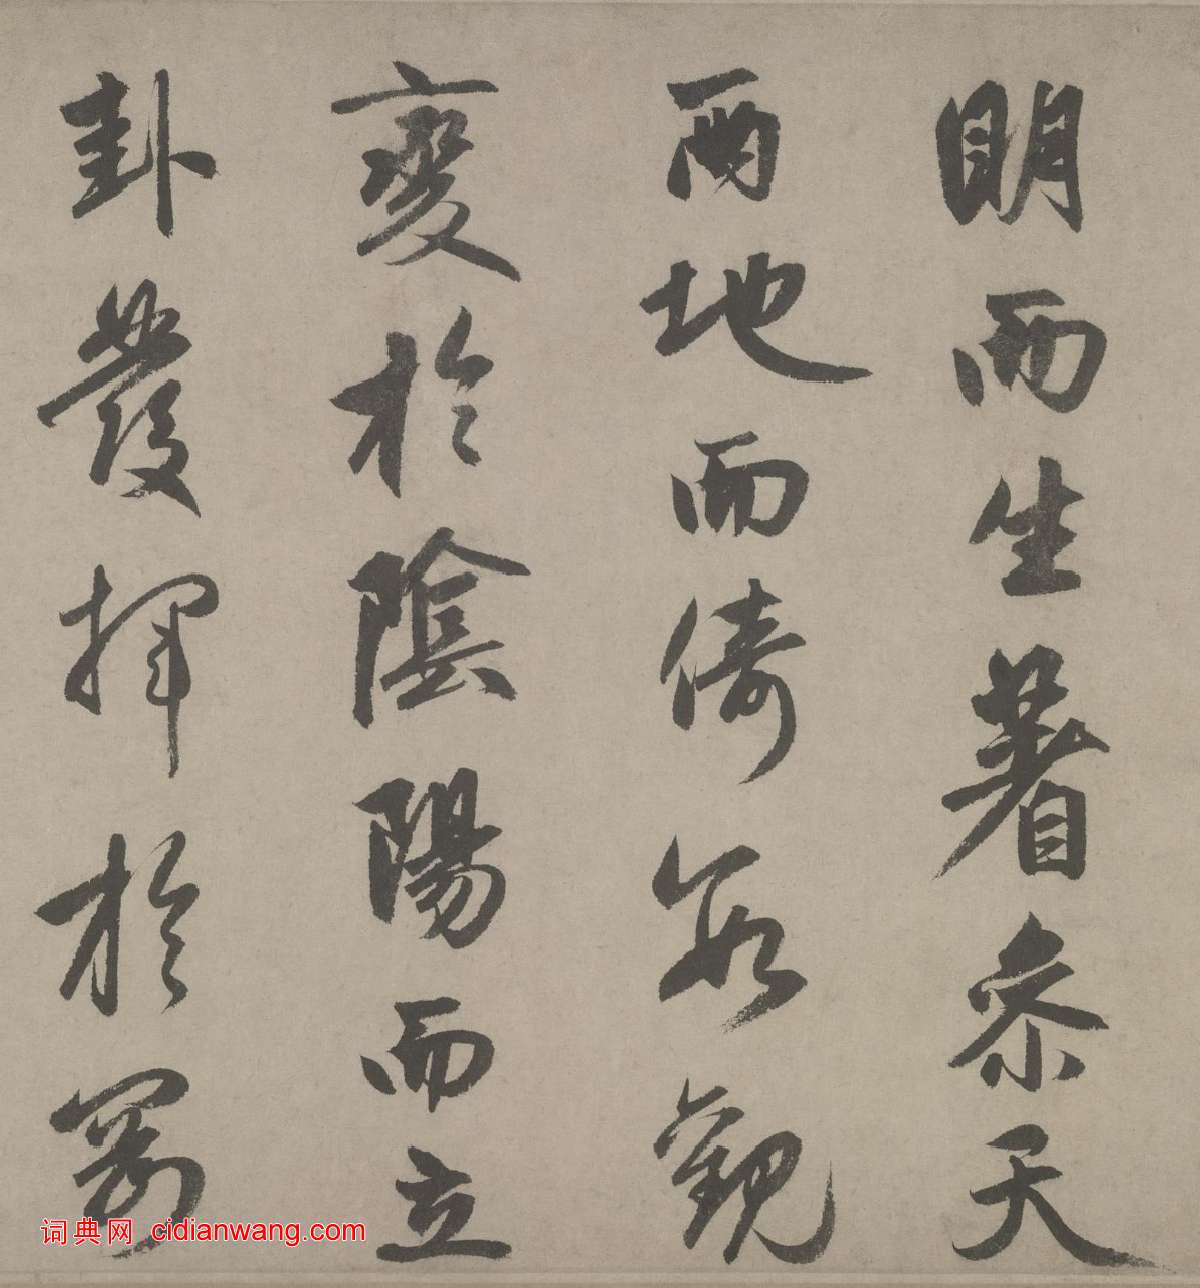 明而生蓍參天
兩地而倚數觀
變於陰陽而立
卦發揮於剛
词典网 cidianwang.com